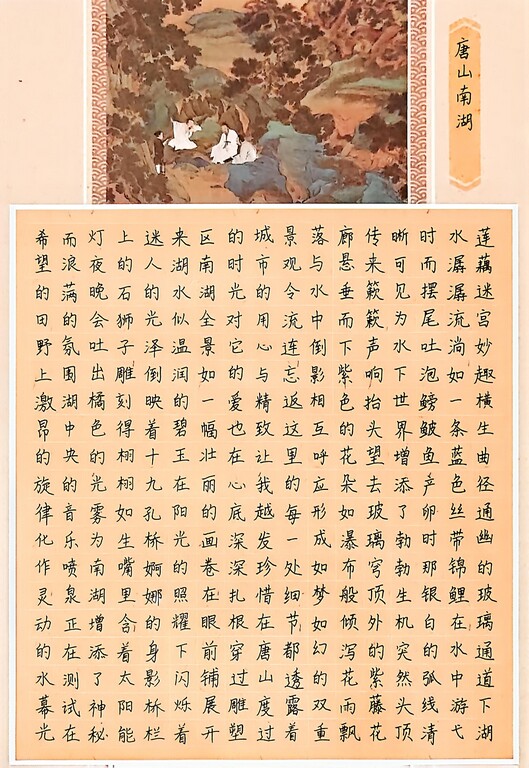 唐山南湖
莲藕迷宫妙趣横生曲径通幽的玻璃通道下湖
水潺潺流淌如一条蓝色丝带锦鲤在水中游弋
时而摆尾吐泡鳑鲏鱼产卵时那银白的弧线清
晰可见为水下世界增添了勃勃生机突然头顶
传来簌簌声响抬头望去玻璃穹顶外的紫藤花
廊悬垂而下紫色的花朵如瀑布般倾泻花雨飘
落与水中倒影相互呼应形成如梦如幻的双重
景观令流连忘返这里的每一处细节都透露着
城市的用心与精致让我越发珍惜在唐山度过
的时光对它的爱也在心底深深扎根穿过雕塑
区南湖全景如一幅壮丽的画卷在眼前铺展开
来湖水似温润的碧玉在阳光的照耀下闪烁着
迷人的光泽倒映着十九孔桥婀娜的身影桥栏
上的石狮子雕刻得栩栩如生嘴里含着太阳能
灯夜晚会吐出橘色的光雾为南湖增添了神秘
而浪满的氛围湖中央的音乐喷泉正在测试在
希望的田野上激昂的旋律化作灵动的水幕光